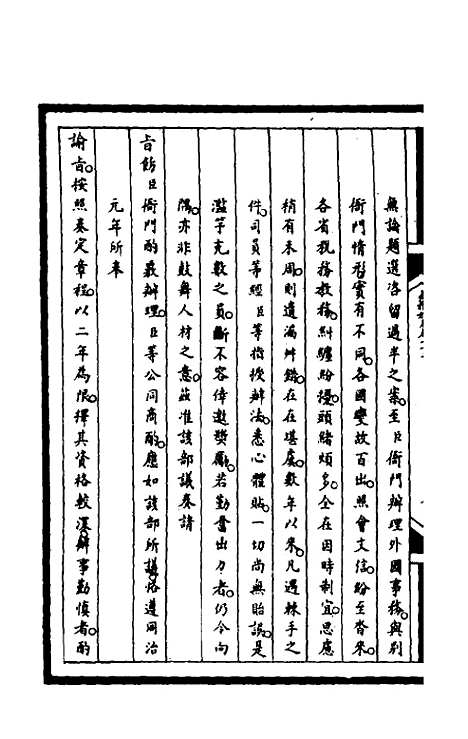 無論題選咨留過半之案至臣衙門辦理外國事務與別
衙門情形實有不同各國變故百出照會文信紛至沓來
各省稅務教務糾纏紛擾頭緒煩多全在因時制宜思慮
稍有未周則遺漏舛錯在在堪虞數年以來凡遇棘手之
件司員等經臣等指授辦法悉心體貼一切尚無貽誤是
濫竽充數之員斷不容倖邀獎勵若勤奮出力者仍令向
隅亦非鼓舞人材之意茲准該部議奏請
旨飭臣衙門酌覈辦理臣等公同商酌應如該部所議恪遵同治
元年所奉
諭旨按照奏定章程以二年為限擇其資格較深辦事勤慎者酌